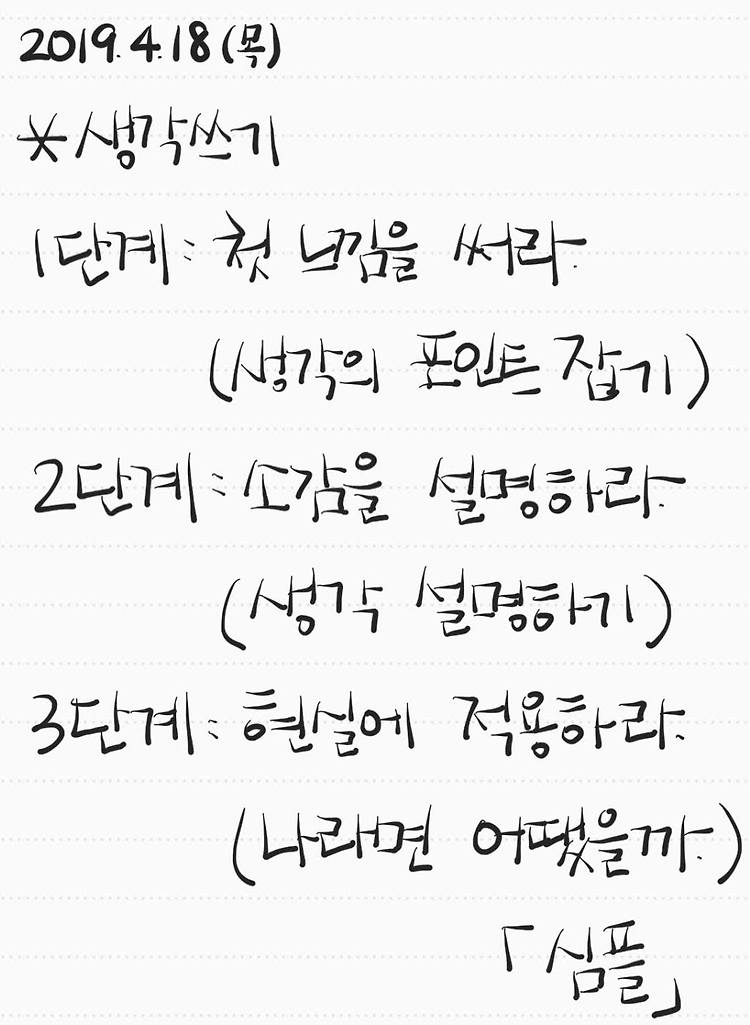 2019.4.18(목)
*생각쓰기
1단계: 첫 느낌을 써라.
(생각의 포인트 잡기)
2단계: 소감을 설명하라.
(생각 설명하기)
3단계: 현실에 적용하라.
(나라면 어땠을까.)
「심플」